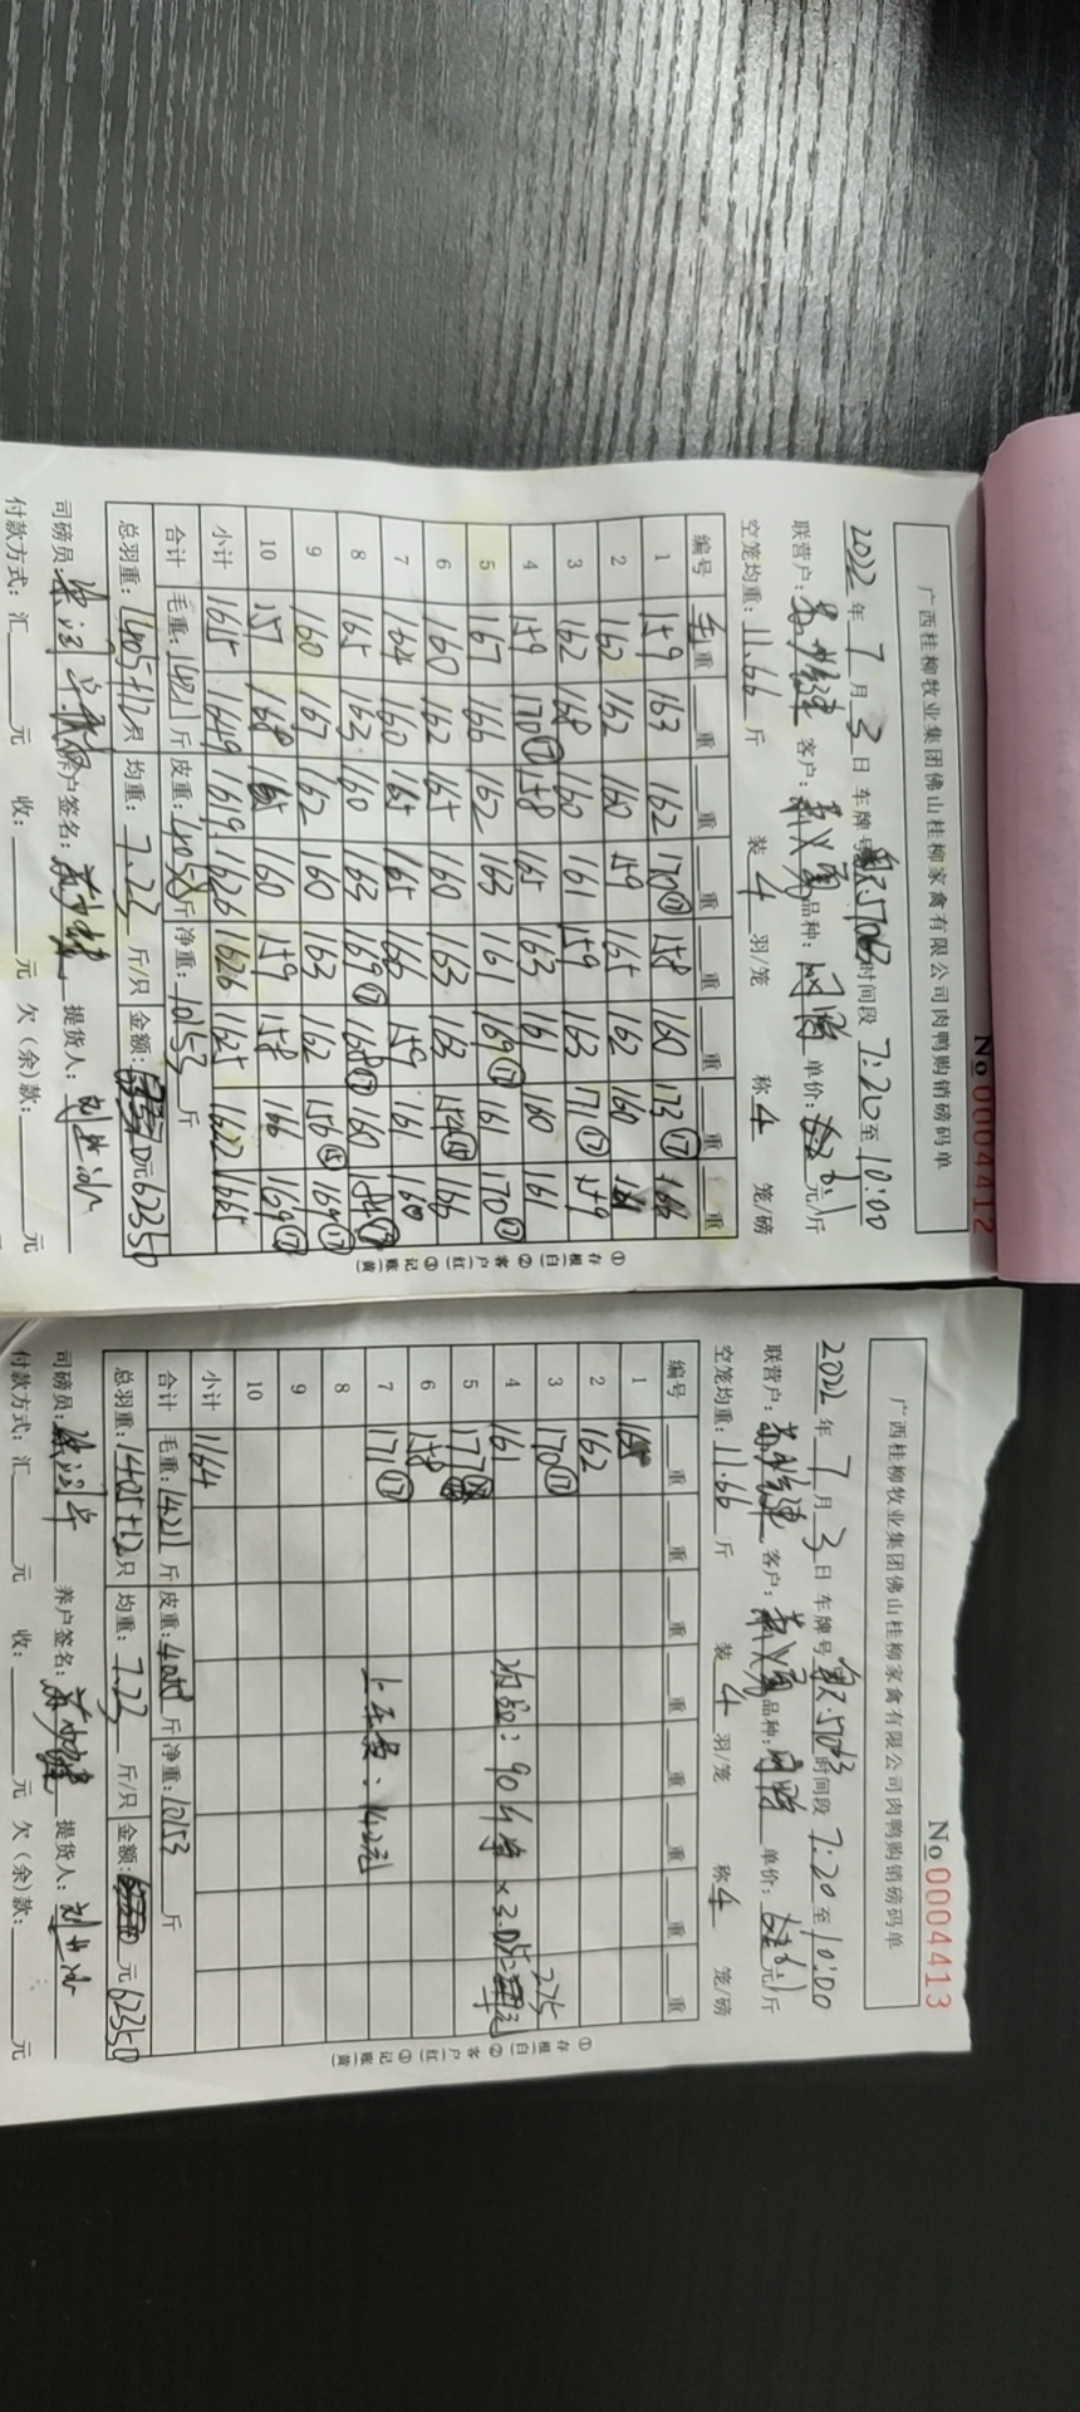 No 0004412
广西桂柳牧业集团佛山桂柳家禽有限公司肉鸭购销磅码单
2022 年 7 月 3 日 车牌号 时间段 7:20 至 10:00
联营户: 客户: 品种: 单价: 元/斤
空笼均重: 11.66 斤 装 4 羽/笼 称 4 笼/磅
编号 毛重 重 重 重 重 重 重 重
1 159 163 162 170⑰ 158 160 173⑰ 166
2 162 162 160 159 165 162 160
3 162 168 160 161 159 163 171⑰ 159
4 159 170⑰ 158 165 163 161 160 161
5 167 166 162 163 161 169⑰ 161 170⑰
6 160 162 165 160 163 163 154⑮ 166
7 164 160 165 165 166 159 161 160
8 165 163 160 163 169⑰ 168⑰ 160
9 160 167 162 160 163 162 156⑮ 169⑰
10 157 168 165 160 159 158 166 169⑰
小计 1615 1649 1619 1626 1626 1625 1622 1665
合计 毛重: 14211 斤 皮重: 4058 斤 净重: 10153 斤
总羽重: 1405+12 只 均重: 7.23 斤/只 金额: 元 62350
司磅员: 养户签名: 提货人:
付款方式: 汇 元 收: 元 欠(余)款: 元
①存根(白)②客户(红)③记账(黄)
No 0004413
广西桂柳牧业集团佛山桂柳家禽有限公司肉鸭购销磅码单
2022 年 7 月 3 日 车牌号 时间段 7:20 至 10:00
联营户: 客户: 品种: 单价: 元/斤
空笼均重: 11.66 斤 装 4 羽/笼 称 4 笼/磅
编号 重 重 重 重 重 重 重 重
1 165
2 162
3 170⑰ 275
4 161 90 × 3.05=
5 177
6 158
7 171⑰ 上车费:
8
9
10
小计 1164
合计 毛重: 14211 斤 皮重: 4058 斤 净重: 10153 斤
总羽重: 1405+12 只 均重: 7.23 斤/只 金额: 元 62350
司磅员: 养户签名: 提货人:
付款方式: 汇 元 收: 元 欠(余)款: 元
①存根(白)②客户(红)③记账(黄)